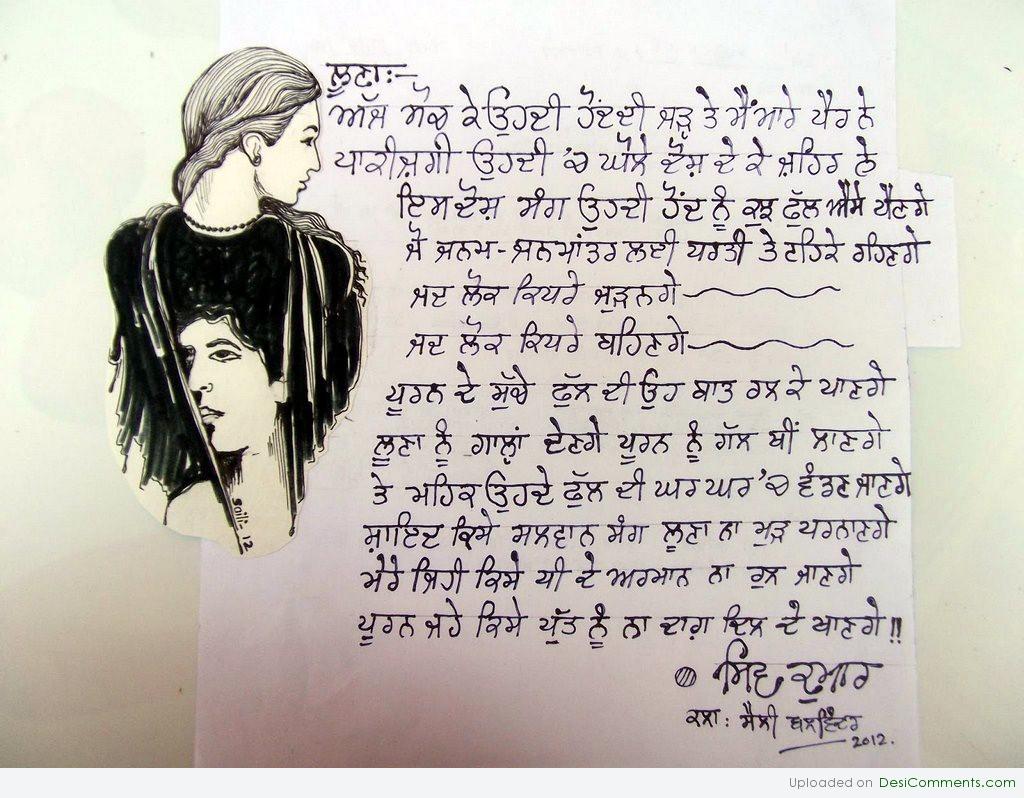 ਲੂਣਾ:-
ਅੱਜ ਸੋਚ ਕੇ ਉਹਦੀ ਹੋਂਦ ਦੀ ਜੜ੍ਹ ਤੇ ਮੈਂ ਮਾਰੇ ਪੈਰ ਨੇ
ਪਾਕੀਜ਼ਗੀ ਉਹਦੀ 'ਚ ਘੋਲੇ ਦੋਸ਼ ਦੇ ਕੇ ਜ਼ਹਿਰ ਨੇ
ਇਸ ਦੋਸ਼ ਸੰਗ ਉਹਦੀ ਹੋਂਦ ਨੂੰ ਕੁਝ ਫੁੱਲ ਐਸੇ ਪੈਣਗੇ
ਜੋ ਜਨਮ-ਜਨਮਾਂਤਰ ਲਈ ਧਰਤੀ ਤੇ ਟਹਿਕੇ ਰਹਿਣਗੇ
ਜਦ ਲੋਕ ਕਿਧਰੇ ਜੁੜਨਗੇ
ਜਦ ਲੋਕ ਕਿਧਰੇ ਬਹਿਣਗੇ
ਪੂਰਨ ਦੇ ਸੁੱਚੇ ਫੁੱਲ ਦੀ ਉਹ ਬਾਤ ਰਲ ਕੇ ਪਾਣਗੇ
ਲੂਣਾ ਨੂੰ ਗਾਲ੍ਹਾਂ ਦੇਣਗੇ ਪੂਰਨ ਨੂੰ ਗੱਲ ਥੀਂ ਲਾਣਗੇ
ਤੇ ਮਹਿਕ ਉਹਦੇ ਫੁੱਲ ਦੀ ਘਰ ਘਰ 'ਚ ਵੰਡਣ ਜਾਣਗੇ
ਸ਼ਾਇਦ ਕਿਸੇ ਸਲਵਾਨ ਸੰਗ ਲੂਣਾ ਨਾ ਮੁੜ ਪਰਨਾਣਗੇ
ਮੇਰੇ ਜਿਹੀ ਕਿਸੇ ਧੀ ਦੇ ਅਰਮਾਨ ਨਾ ਰੁਲ ਜਾਣਗੇ
ਪੂਰਨ ਜਹੇ ਕਿਸੇ ਪੁੱਤ ਨੂੰ ਨਾ ਦਾਗ਼ ਦਿਲ ਦੇ ਖਾਣਗੇ !!
ਸ਼ਿਵ ਕੁਮਾਰ
ਕਲਾ : ਸੈਲੀ ਬਲਜਿੰਦਰ
2012.
Saili-12
Uploaded on DesiComments.com